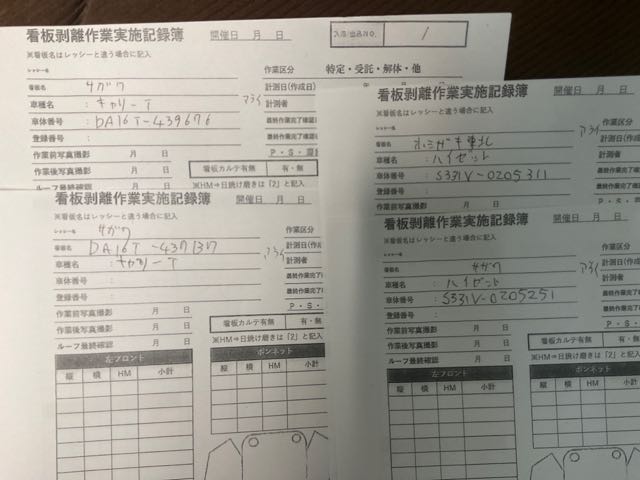 看板剥離作業実施記録簿 開催日 月 日 入庫/出品NO. 1
※看板名はレッシーと違う場合に記入
レッシー名 作業区分 特定・受託・解体・他
看板名 サガワ 計測日(作成日)
車種名 : キャリーT アライ 計測者
車体番号 : DA16T-439676
登録番号 :
作業前写真撮影 月 日 P・S・
作業後写真撮影 月 日 看板カルテ有無 有・無
ルーフ最終確認 月 日 ※HM⇒日焼け磨きは「2」と記入
看板剥離作業実施記録簿 開催日 月 日
※看板名はレッシーと違う場合に記入
レッシー名 サガワ 作業区分
看板名 DA16T-437137 アライ 計測日(作成
車種名 : キャリーT 計測者
車体番号 : 最終作業完了
登録番号 : P・S・
作業前写真撮影 月 日
作業後写真撮影 月 日 看板カルテ有無 有・無
ルーフ最終確認 月 日 ※HM⇒日焼け磨きは「2」と記入
左フロント ボンネット
縦 横 HM 小計 縦 横 HM 小計
看板剥離作業実施記録簿 開催日 月 日
※看板名はレッシーと違う場合に記入
レッシー名 作業区分
看板名 ホシザキ東北 アライ 計測日(作
車種名 : ハイゼット 計測者
車体番号 : S331V-0205311
登録番号 :
看板剥離作業実施記録簿 開催日 月 日
※看板名はレッシーと違う場合に記入
レッシー名 作業区分
看板名 サガワ アライ 計測日(作成
車種名 : ハイゼット 計測者
車体番号 : S331V-0205251 最終作業完了
登録番号 : P・S・
作業前写真撮影 月 日
作業後写真撮影 月 日 看板カルテ有無 有・
ルーフ最終確認 月 日 ※HM⇒日焼け磨きは「2」と記入
左フロント ボンネット
縦 横 HM 小計 縦 横 HM 小